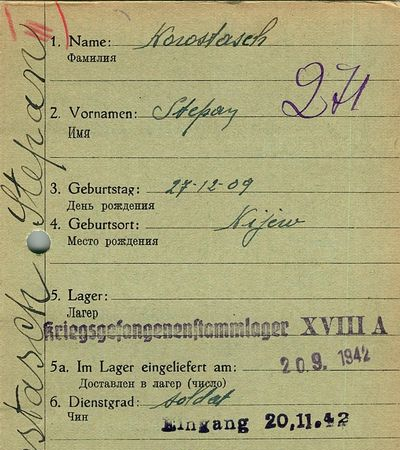 1. Name: Korostasch
Фамилия
271
2. Vornamen: Stepan
Имя
3. Geburtstag: 27-12-09
День рождения
4. Geburtsort: Nijew
Место рождения
5. Lager:
Лагер
Kriegsgefangenenstammlager XVIII A
5a. Im Lager eingeliefert am: 20.9. 1942
Доставлен в лагер (число)
6. Dienstgrad: soldat
Чин
Eingang 20.11.42
stasch Stepan